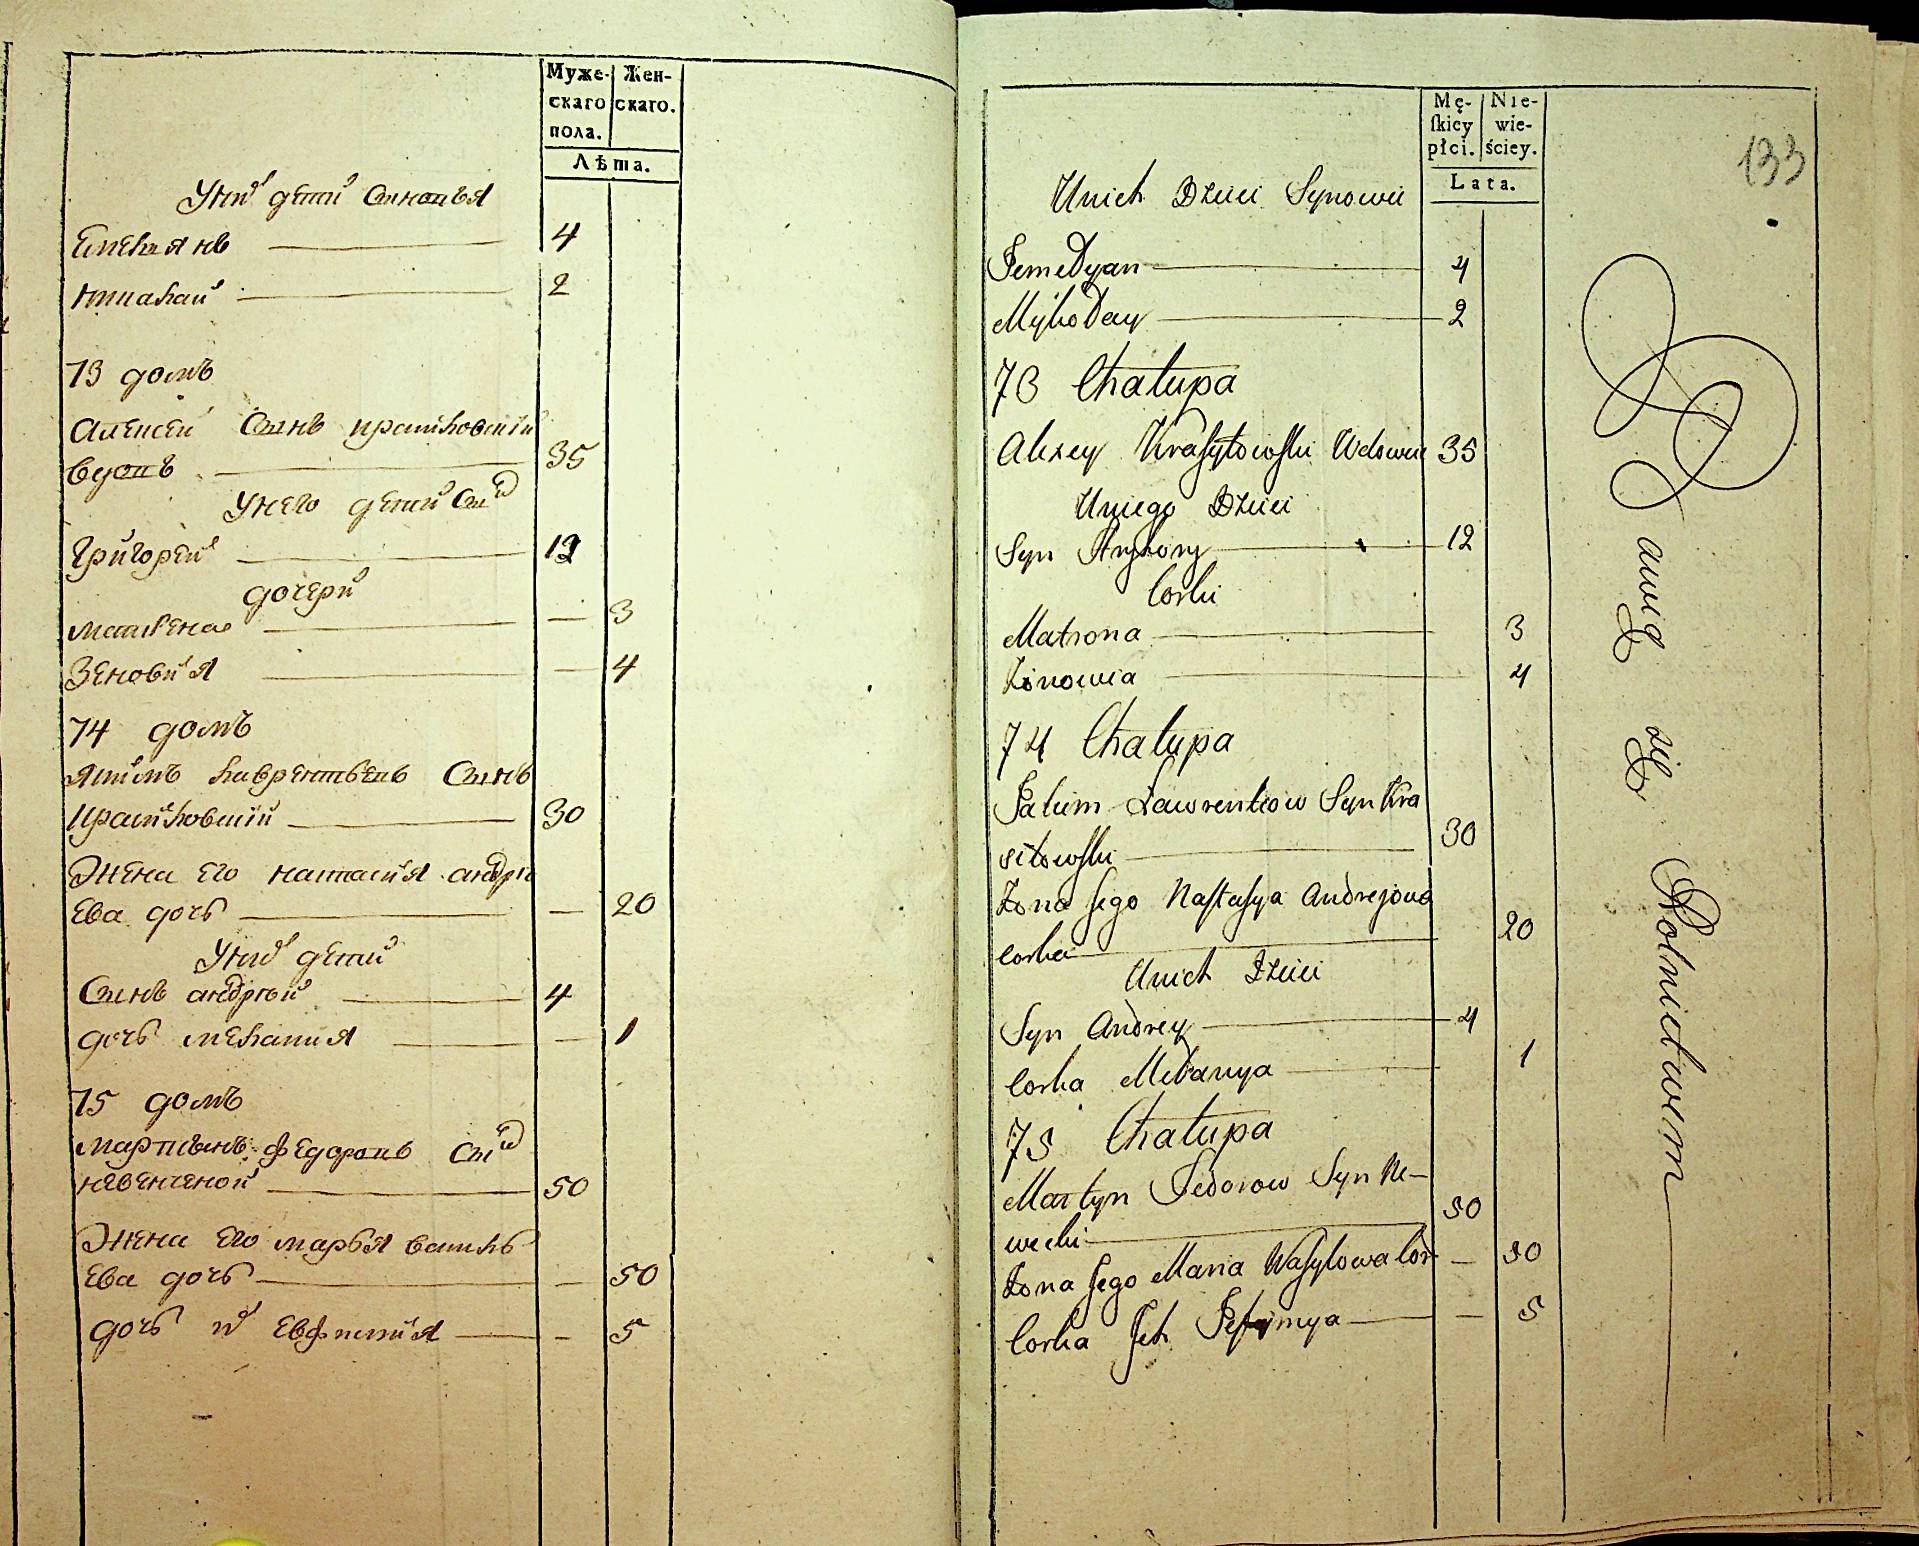 Муже-
скаго
пола.
Жен-
скаго.
Лѣта.
Уних детей синовья
Емельянъ 4
Николай 2
73 домъ
Алексей Синъ красиловский
вдовъ 35
Унего детей син
Григорей 12
дочери
матрена — 3
Зеновия — 4
74 домъ
якимъ лаврентьевъ Синъ
красиловский 30
Жена Его настасия андре
Ева дочь — 20
Уних детей
Синъ андрей 4
дочь мелания — 1
75 домъ
мартинъ федоровъ син
50
Жена Его марья василь
Ева дочь — 50
дочь их Евфимия — 5
Mę-
skiey
płci.
Nie-
wie-
ściey.
Lata.
133
Unich Dzieci Synowie
Jemelyan 4
Mykolay 2
73 Chalupa
Alexey Krasyłowski Wdowiec 35
Uniego Dzieci
Syn Hryhory 12
Corki
Matrona 3
Zinowia 4
74 Chalupa
Jakim Lawrentiow Syn Kra
siłowski 30
Zona Jego Nastasya Andrejowa
corka 20
Unich Dzieci
Syn Andrey 4
Corka Melanya 1
75 Chalupa
Martyn Fedorow Syn Ne-
50
Zona Jego Maria Wasylowa Cor — 50
Corka Jch Jefimya — 5
Bawią się Rolnictwem